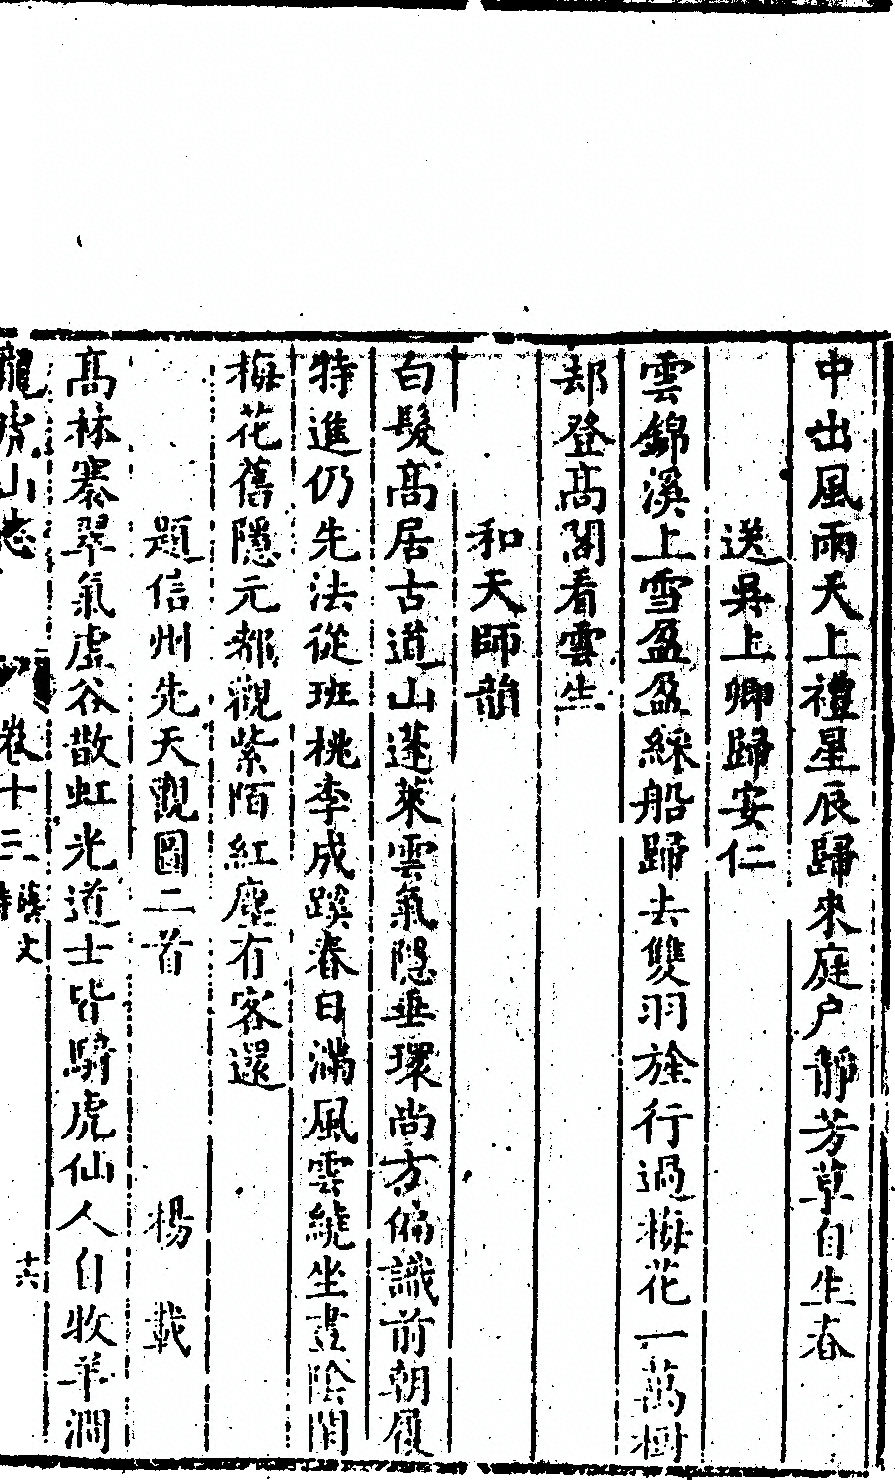 中出風雨天上禮星辰歸來庭户靜芳草自生春
送吳上卿歸安仁
雲錦溪上雪盈盈綵船歸去雙羽旌行過梅花一萬樹
却登高閣看雲生
和天師韻
白髮高居古道山蓬萊雲氣隱垂環尚方偏識前朝履
特進仍先法從班桃李成蹊春日滿風雲繞坐晝陰閒
梅花舊隱元都觀紫陌紅塵有客還
題信州先天觀圖二首 楊載
高林褰翠氣虛谷散虹光道士皆騎虎仙人自牧羊澗
龍虎山志 卷十三 藝文 詩 十六